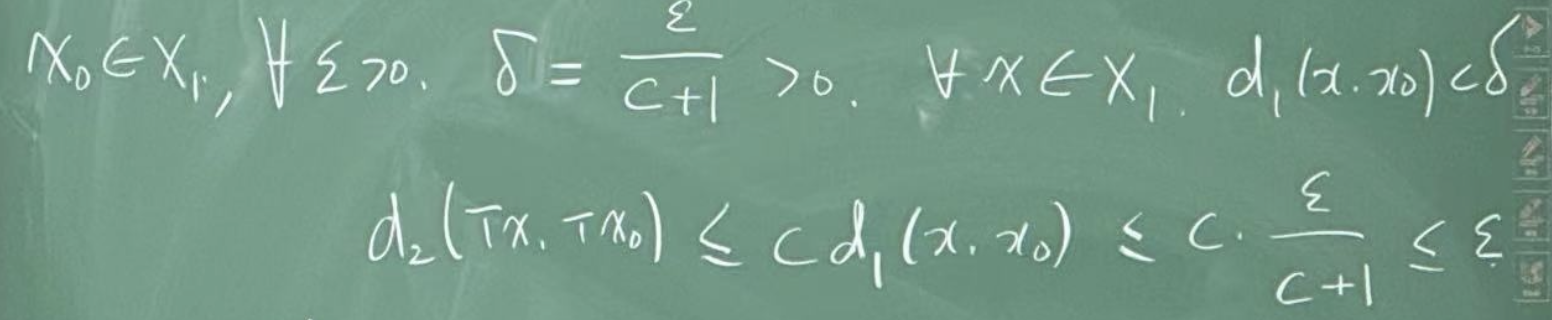 x₀ ∈ X₁, ∀ ε > 0. δ = ε/(C+1) > 0. ∀ x ∈ X₁. d₁(x. x₀) < δ
d₂(Tx. Tx₀) ≤ C d₁(x. x₀) ≤ C · ε/(C+1) ≤ ε